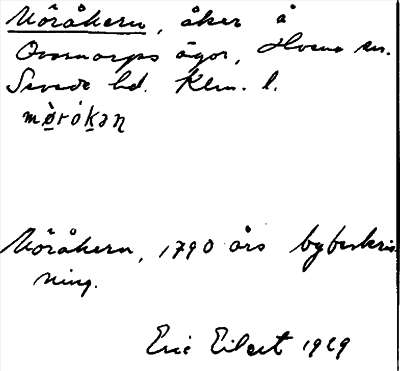 Möråkern, åker å
Ovanarps ägor, Hvena sn.
Sevede hd. Klm. l.
mörókan
Möråkern, 1790 års bybeskriv-
ning.
Eric Eilert 1929